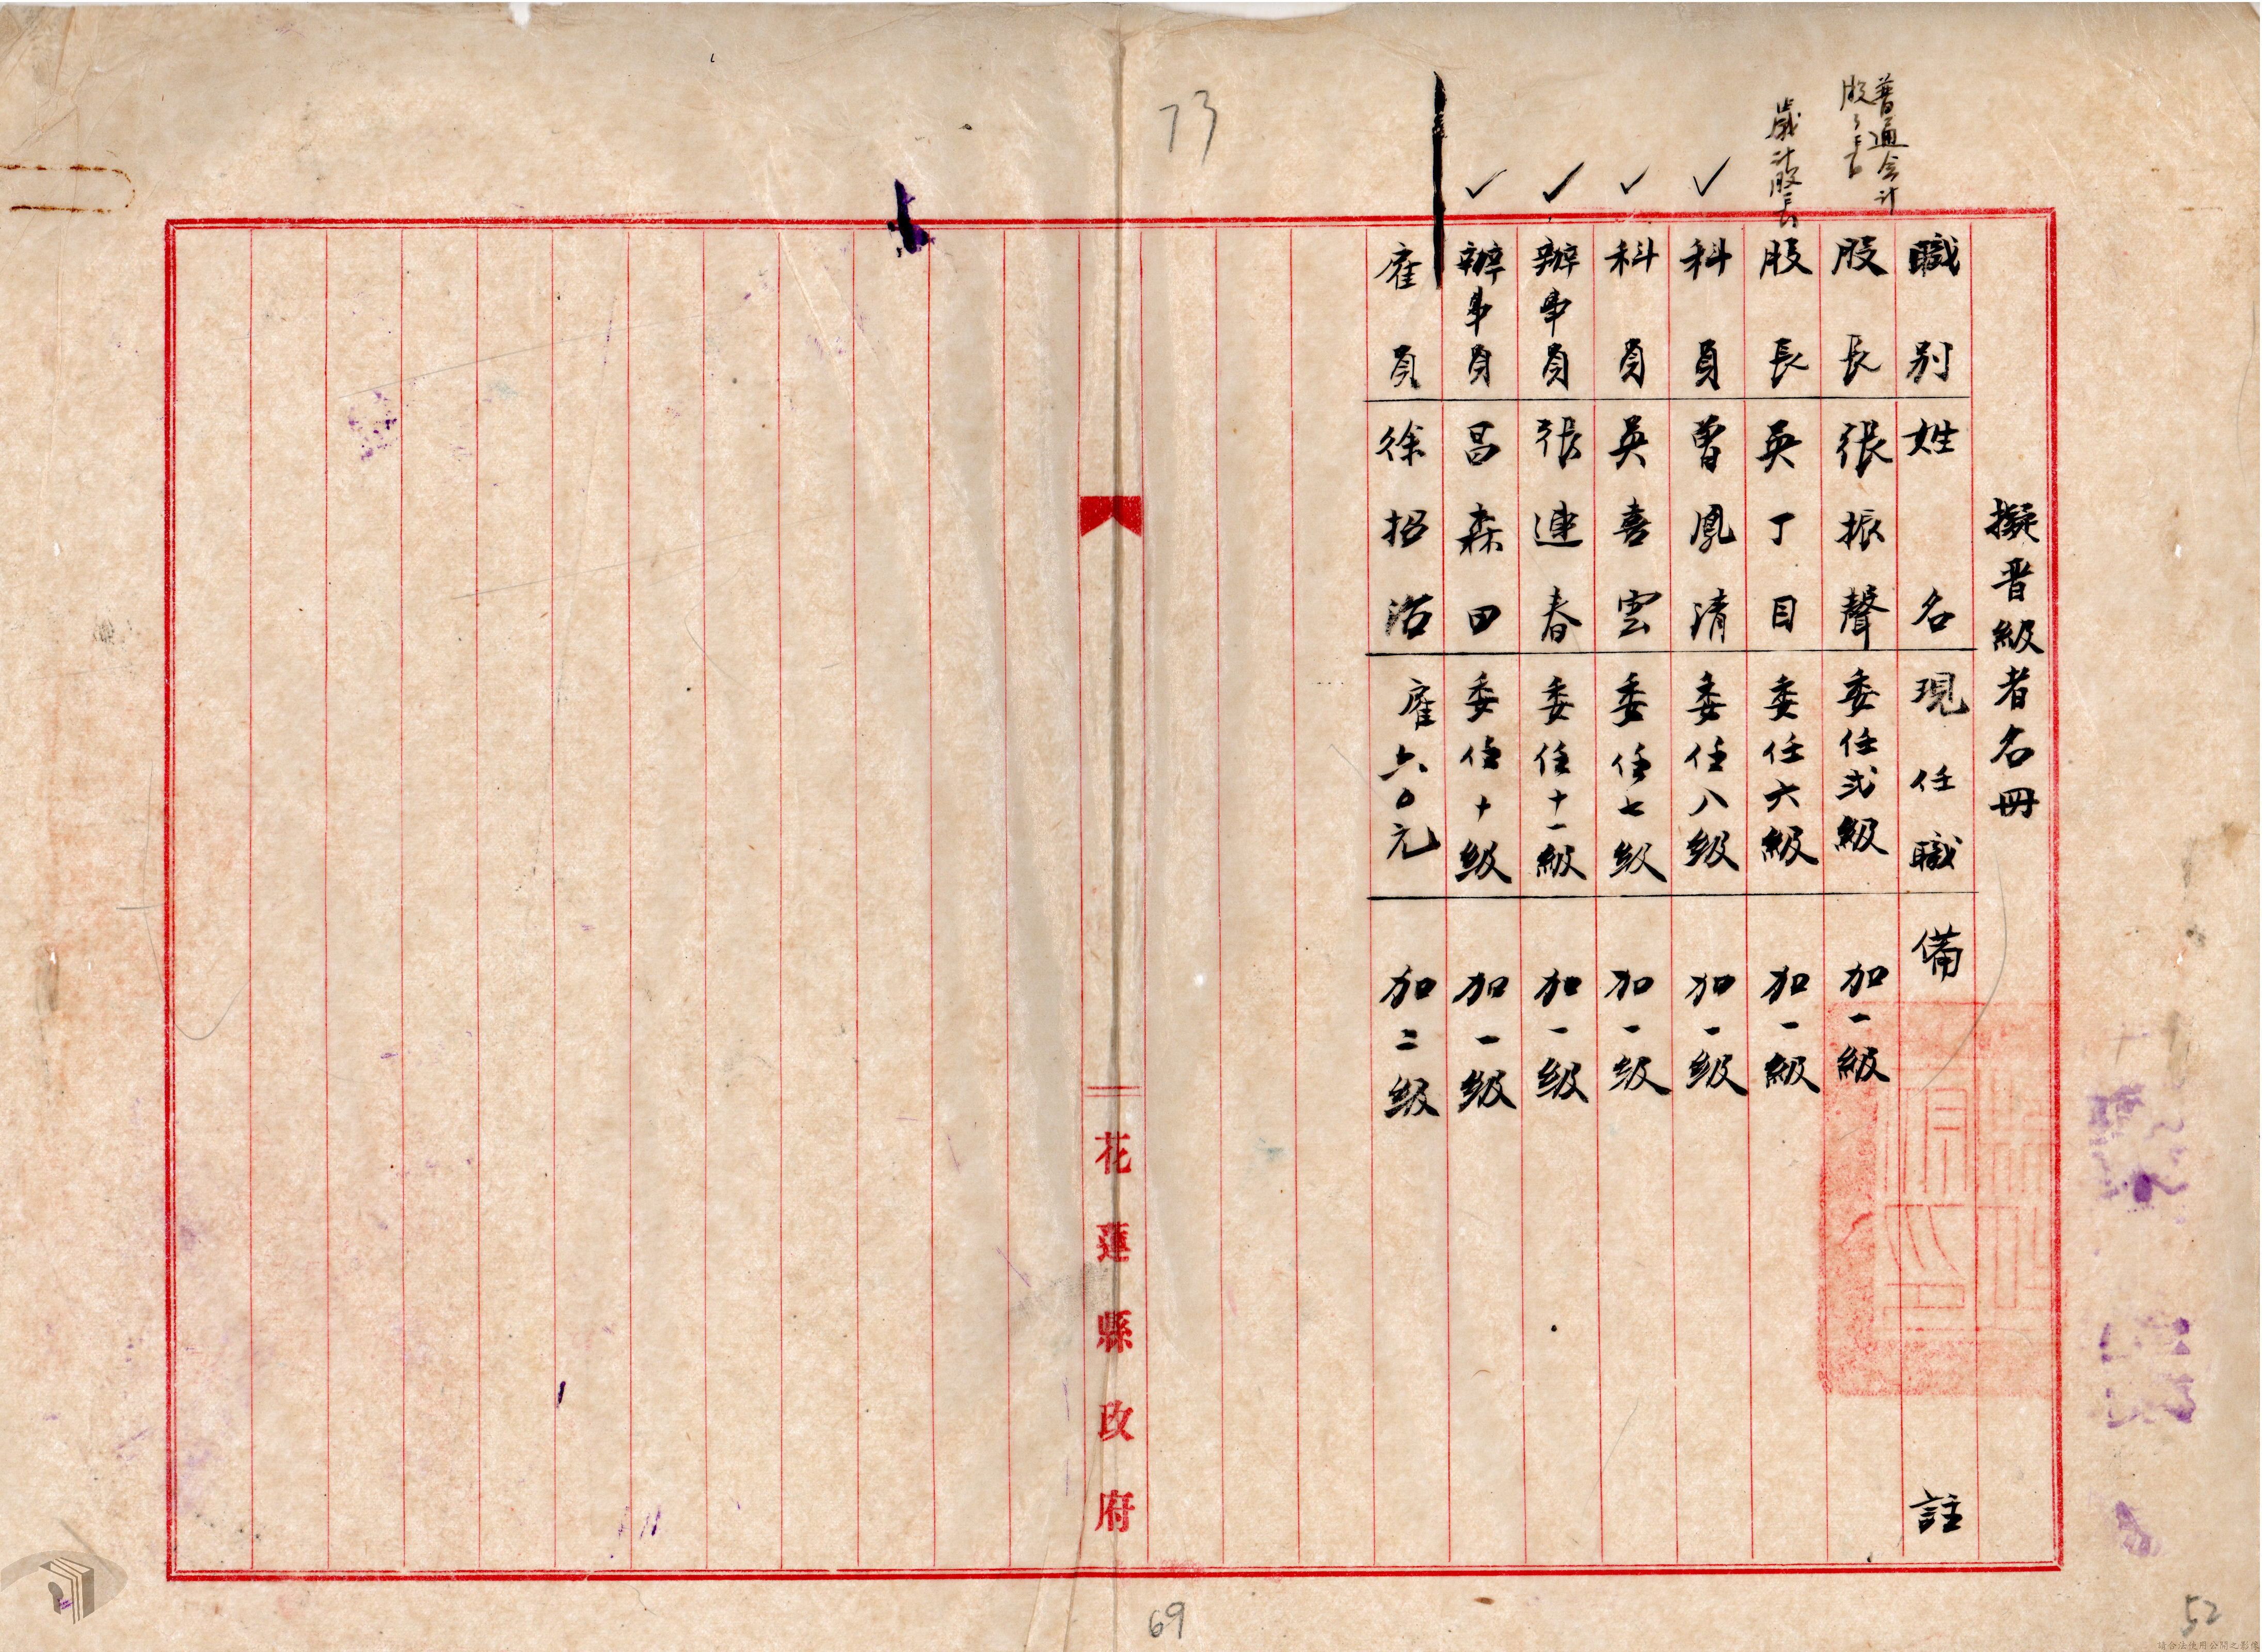 擬晋級者名冊
職別 姓名 現任職 備註
普通会計
股長
股長 張振聲 委任弍級 加一級
歲計股長
股長 吳丁目 委任六級 加一級
科員 曾鳳清 委任八級 加一級
科員 吳喜雲 委任七級 加一級
辦事員 張連春 委任十一級 加一級
辦事員 呂森田 委任十級 加一級
雇員 徐招治 雇六〇元 加二級
73
花蓮縣政府
69
52
請合法使用公開之影像